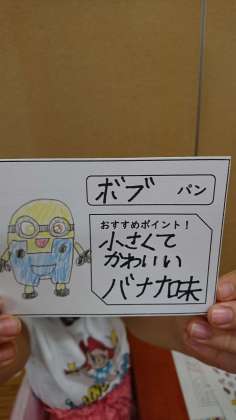 ボブ パン
おすすめポイント！
小さくて
かわいい
バナナ味